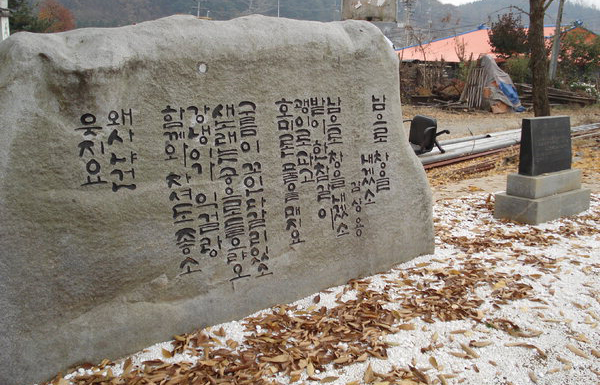 남으로 창을
내겠소
김상용
남으로 창을 내겠소
밭이 한참갈이
괭이로 파고
호미론 풀을 매지요
구름이 꼬인다 갈리 있소
새노래는 공으로 들으랴오
강냉이가 익걸랑
함께 와 자셔도 좋소
왜 사냐건
웃지요